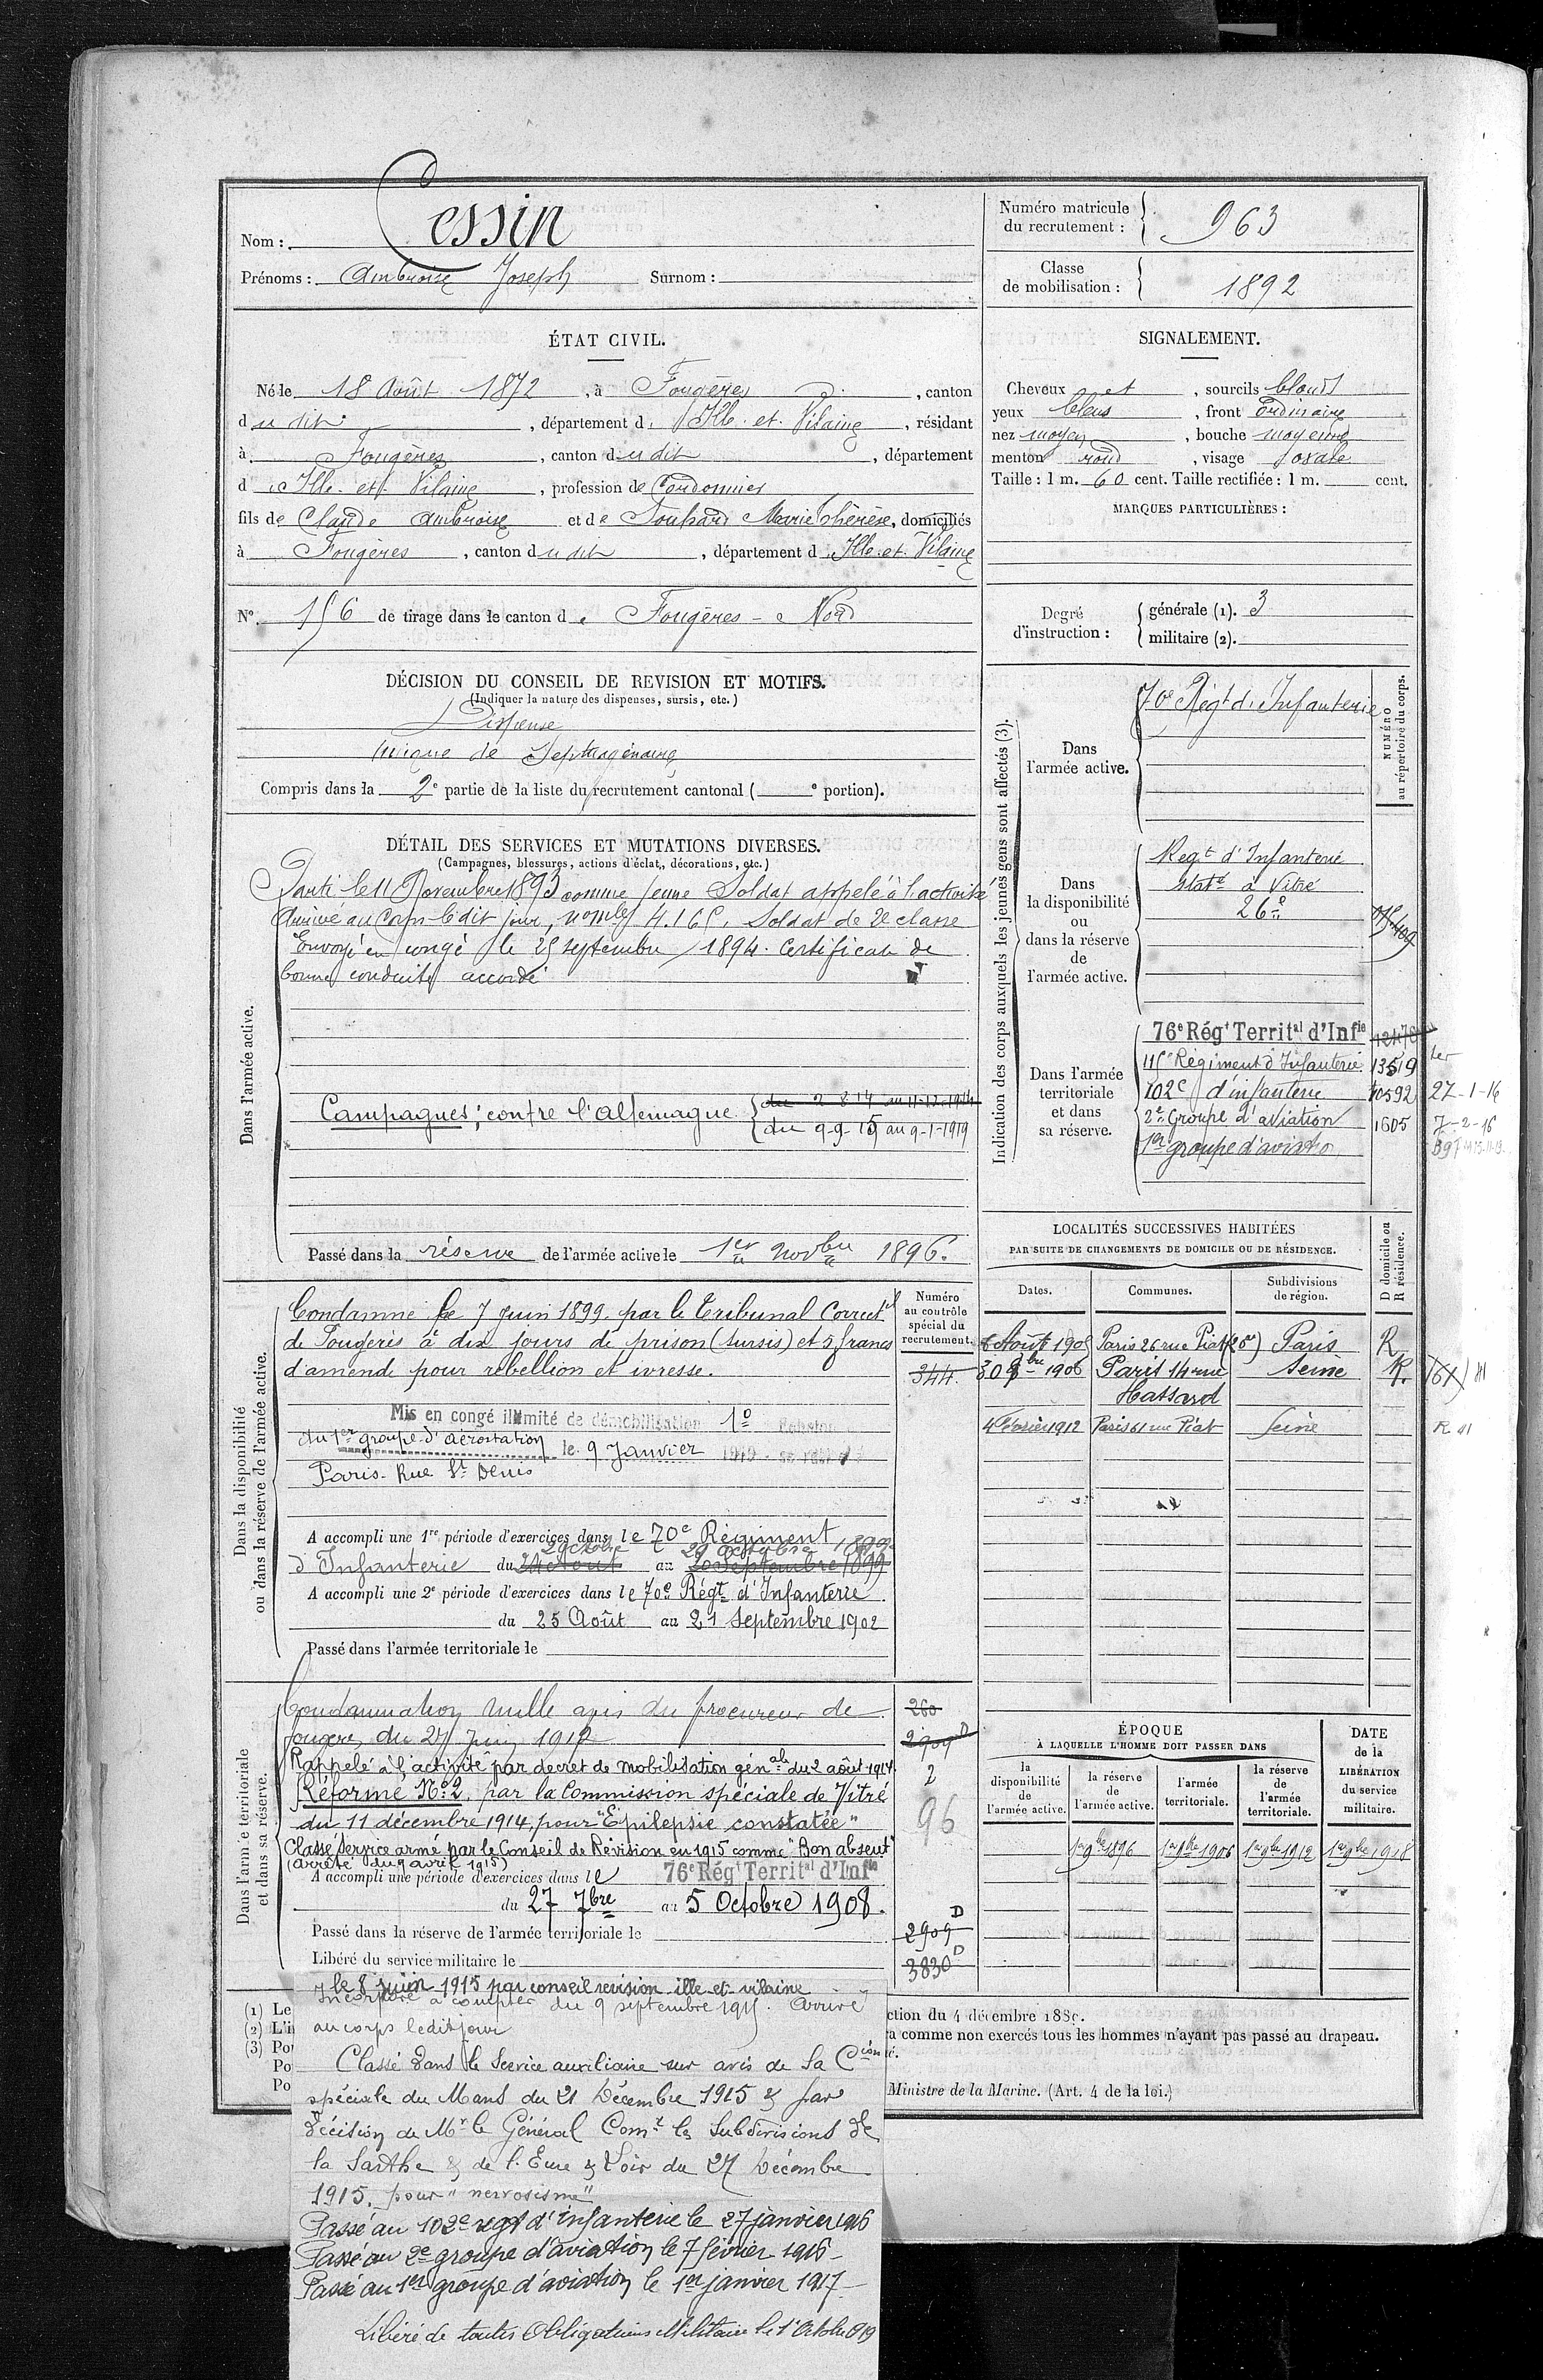 Nom : Cessin
Prénoms : Ambroise Joseph Surnom :
Numéro matricule du recrutement : 963
Classe de mobilisation : 1892
ÉTAT CIVIL.
Né le 18 Août 1872, à Fougères, canton
du dit, département d'Ille-et-Vilaine, résidant
à Fougères, canton du dit, département
d'Ille-et-Vilaine, profession de Cordonnier
fils de Claude Ambroise et de Marie Thérèse, domiciliés
à Fougères, canton du dit, département d'Ille-et-Vilaine
N° 156 de tirage dans le canton de Fougères - Nord
SIGNALEMENT.
Cheveux et, sourcils blonds
yeux bleus, front ordinaire
nez moyen, bouche moyenne
menton rond, visage ovale
Taille : 1 m. 60 cent. Taille rectifiée : 1 m. cent.
MARQUES PARTICULIÈRES :
Degré d'instruction :
générale (1). 3
militaire (2).
DÉCISION DU CONSEIL DE REVISION ET MOTIFS.
(Indiquer la nature des dispenses, sursis, etc.)
Dispensé
unique de septuagénaire
Compris dans la 2e partie de la liste du recrutement cantonal ( e portion).
DÉTAIL DES SERVICES ET MUTATIONS DIVERSES.
(Campagnes, blessures, actions d'éclat, décorations, etc.)
Dans l'armée active.
Parti le 11 Novembre 1893 comme jeune Soldat appelé à l'activité
Arrivé au Corps le dit jour, no mle 4.165, Soldat de 2e classe
Envoyé en congé le 25 septembre 1894. Certificat de
bonne conduite accordé
Campagnes : contre l'Allemagne du 2 8 14 au 11-12-1914
du 9-9-15 au 9-1-1919
Passé dans la réserve de l'armée active le 1er Novbre 1896.
Indication des corps auxquels les jeunes gens sont affectés (3).
NUMÉRO au répertoire du corps.
Dans l'armée active.
70e Régt d'Infanterie
Dans la disponibilité ou dans la réserve de l'armée active.
Regt d'Infanterie
staté à Vitré
26e
Dans l'armée territoriale et dans sa réserve.
76e Régt Territal d'Infie
115e Régiment d'Infanterie 13519
102e d'infanterie 10592 27-1-16
2e Groupe d'aviation 1605 7-2-16
1er groupe d'aviatio
Dans la disponibilité ou dans la réserve de l'armée active.
Numéro au contrôle spécial du recrutement.
344
Condamné le 7 Juin 1899 par le Tribunal Correctel
de Fougères à dix jours de prison (sursis) et 5 francs
d'amende pour rébellion et ivresse.
Mis en congé illimité de démobilisation 1°
du 1er groupe d'aérostation le 9 Janvier 1919
Paris - Rue St Denis
A accompli une 1re période d'exercices dans le 70e Régiment
2 octobre 29 octobre 1899
d'Infanterie du 24 Août au 20 Septembre 1899
A accompli une 2e période d'exercices dans le 70e Régt d'Infanterie
du 25 Août au 21 Septembre 1902
Passé dans l'armée territoriale le
LOCALITÉS SUCCESSIVES HABITÉES
PAR SUITE DE CHANGEMENTS DE DOMICILE OU DE RÉSIDENCE.
Dates. Communes. Subdivisions de région. D domicile ou R résidence.
Août 1905 Paris 26 rue Piat (20e) Paris R
30 1906 Paris 14 rue Seine R.
Hassard
4 Février 1912 Paris 61 rue Piat Seine
Dans l'armée territoriale et dans sa réserve.
Condamnation nulle avis du procureur de
Fougères du 27 Juin 1912
Rappelé à l'activité par decret de mobilisation génale du 2 août 1914
Réformé No 2, par la Commission spéciale de Vitré
du 11 décembre 1914, pour "Epilepsie constatée"
Classé service armé par le Conseil de Révision en 1915 comme "Bon absent"
(arrêté du 9 avril 1915)
A accompli une période d'exercices dans le 76e Régt Territal d'Infie
du 27 7bre au 5 Octobre 1908.
Passé dans la réserve de l'armée territoriale le
Libéré du service militaire le
260
2909 D
2
96
2909 D
3830 D
ÉPOQUE
À LAQUELLE L'HOMME DOIT PASSER DANS
la disponibilité de l'armée active. la réserve de l'armée active. l'armée territoriale. la réserve de l'armée territoriale.
DATE de la LIBÉRATION du service militaire.
1er 9bre 1896 1er 9bre 1906 1er 9bre 1912 1er 9bre 1918
le 8 juin 1915 par conseil revision ille et vilaine
Incorporé à compter du 9 septembre 1915. Arrivé
au corps ledit jour
Classé dans le Service auxiliaire sur avis de la Cion
spéciale du Mans du 21 Décembre 1915 & par
décision de Mr le Général Comt les Subdivisions de
la Sarthe & de l'Eure & Loir du 27 Décembre
1915. pour "nervosisme"
Passé au 102e regt d'infanterie le 27 janvier 1916
Passé au 2e groupe d'aviation le 7 février 1916
Passé au 1er groupe d'aviation le 1er janvier 1917
Libéré de toutes Obligations Militaire le 1er Octobre 1919
(1) Le
(2) L'i
(3) Po
Po
Po
ction du 4 décembre 1889.
ra comme non exercés tous les hommes n'ayant pas passé au drapeau.
Ministre de la Marine. (Art. 4 de la loi.)